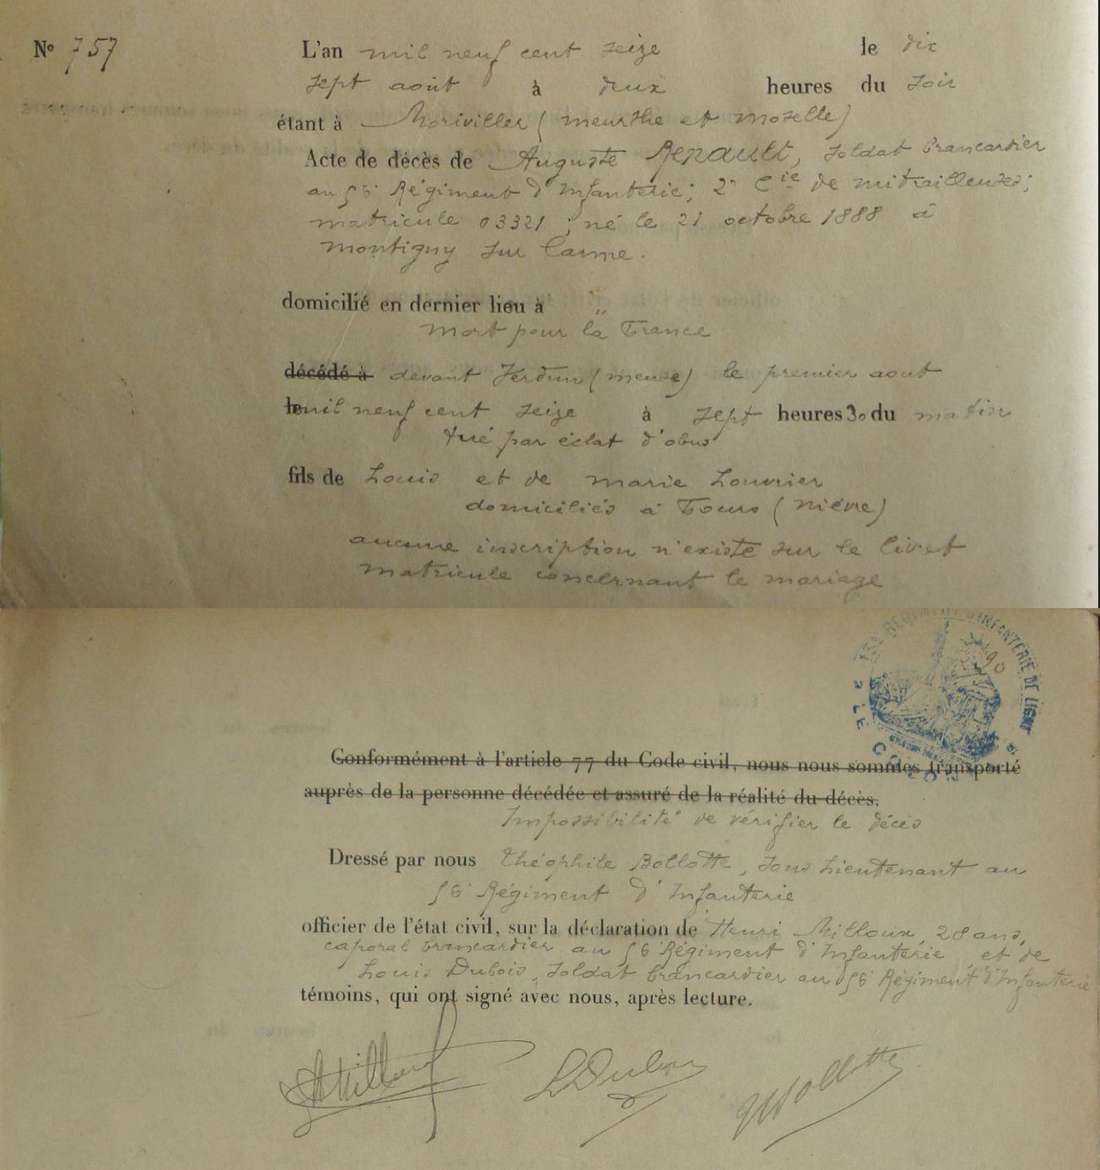 N° 757
L'an mil neuf cent seize le dix
sept août à deux heures du soir
étant à Moriviller (Meurthe et Moselle)
Acte de décès de Auguste Renault, soldat brancardier
au 56e Régiment d'Infanterie; 2e Cie de mitrailleuses;
matricule 03321; né le 21 octobre 1888 à
Montigny sur Canne.
domicilié en dernier lieu à "
Mort pour la France
décédé à devant Verdun (Meuse) le premier août
le mil neuf cent seize à sept heures 30 du matin
tué par éclat d'obus
fils de Louis et de Marie Louvrier
domiciliés à Tours (Nièvre)
aucune inscription n'existe sur le livret
matricule concernant le mariage
RÉGIMENT D'INFANTERIE DE LIGNE
90
LE
Conformément à l'article 77 du Code civil, nous nous sommes transporté
auprès de la personne décédée et assuré de la réalité du décès.
Impossibilité de vérifier le décès
Dressé par nous Théophile Bollotte, Sous Lieutenant au
56e Régiment d'Infanterie
officier de l'état civil, sur la déclaration de Henri Milloux, 28 ans,
caporal brancardier au 56e Régiment d'Infanterie et de
Louis Dubois, soldat brancardier au 56e Régiment d'Infanterie
témoins, qui ont signé avec nous, après lecture.
HMilloux LDubois Bollotte